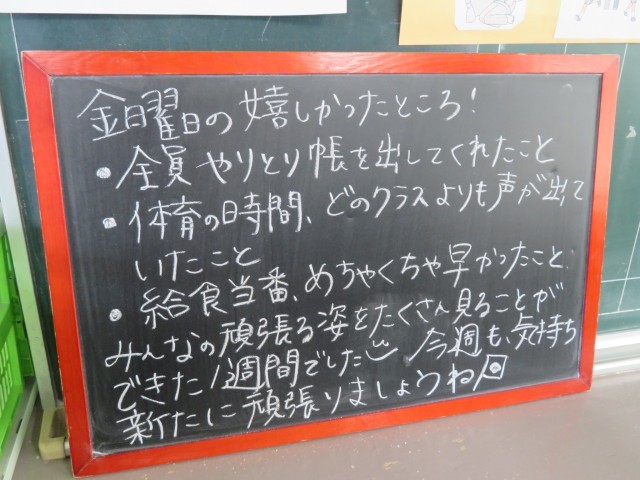 金曜日の嬉しかったところ!
・全員やりとり帳を出してくれたこと
・体育の時間、どのクラスよりも声が出て
いたこと
・給食当番、めちゃくちゃ早かったこと
みんなの頑張る姿をたくさん見ることが
できた1週間でした 今週も、気持ち
新たに頑張りましょうね